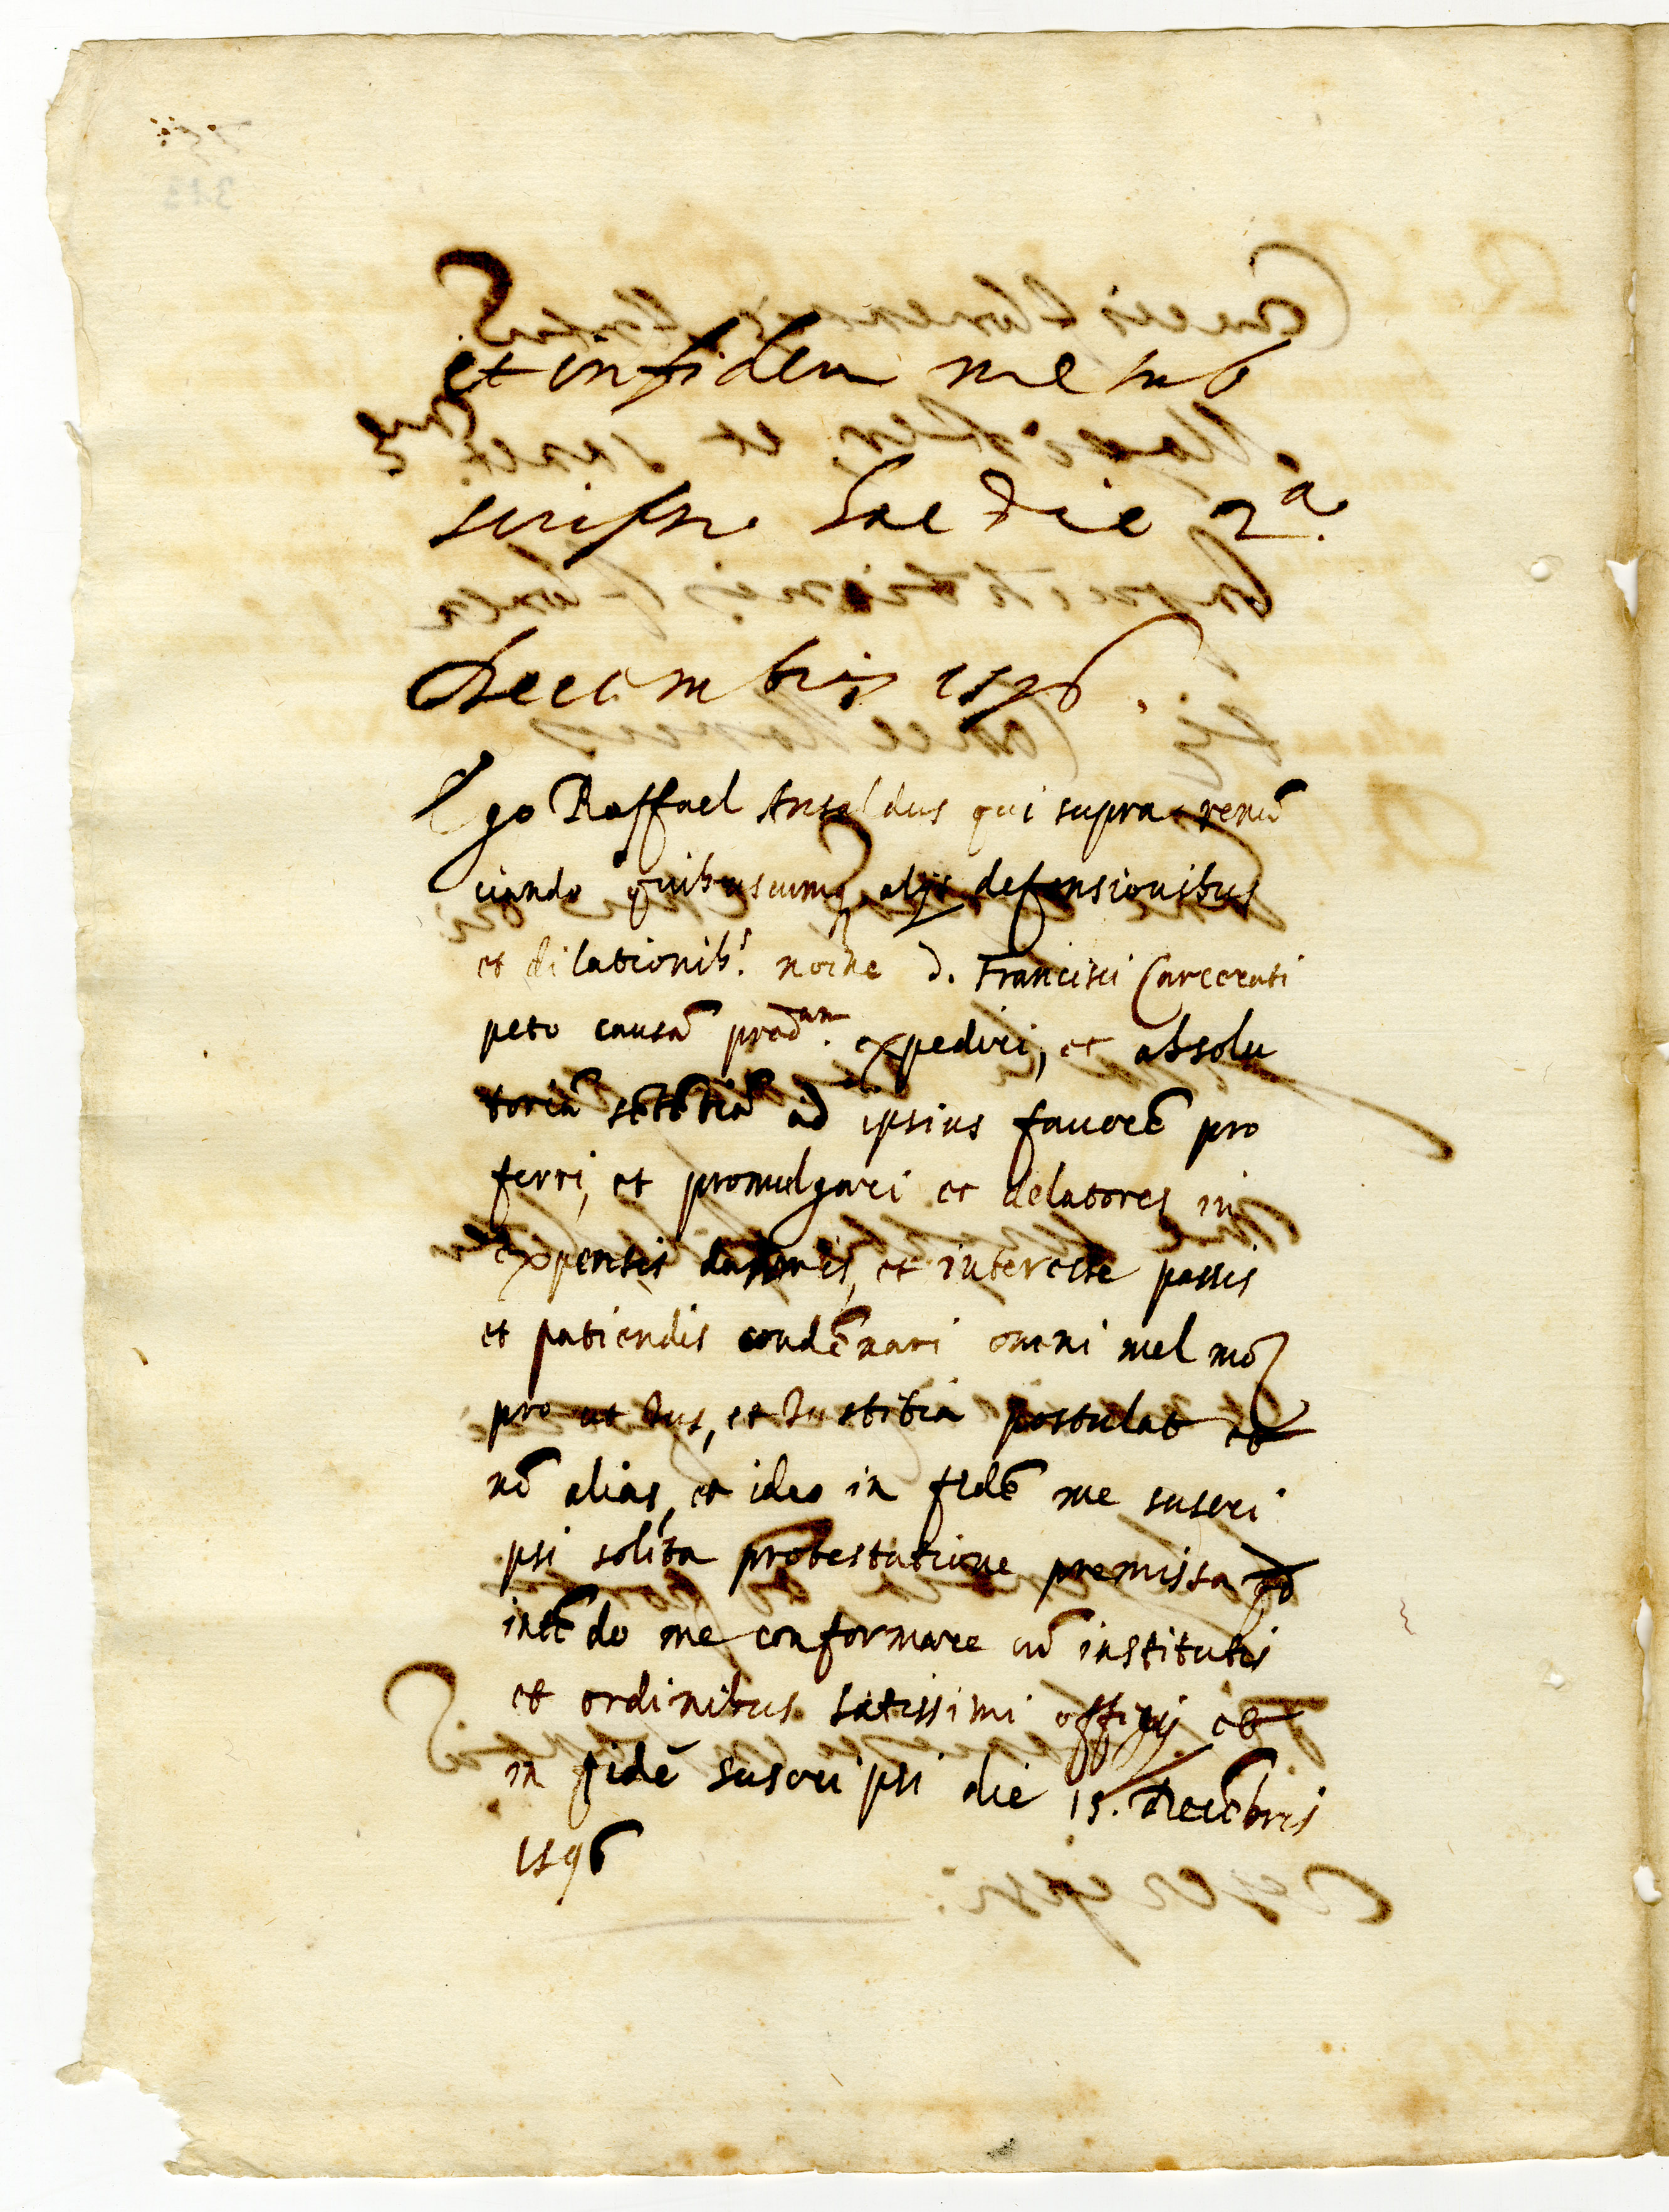 et in fidem me sub
scripsi hac die 2.a
Decembris 1596.
Ego Raffael Ansaldus qui supra renũ
ciando quibuscumq alijs defensionibus
et dilationib. noĩne D. Francisci Carcerati
peto causã pred.am expediri, et absolu
toriã sẽtẽtiã ad ipsius fauorẽ pro
ferri, et promulgari et delatores in
expensis damnis, et interesse passis
et patiendis condẽnari omni mel mõ
pro ut Ius, et Iustitia postulat et
nõ alias, et ideo in fidẽ me suscri
psi solita protestatione premissa
intẽdo me conformare cũ institutis
et ordinibus sãtissimi officij et
in fidẽ suscripsi die 15. Decẽbris
1596